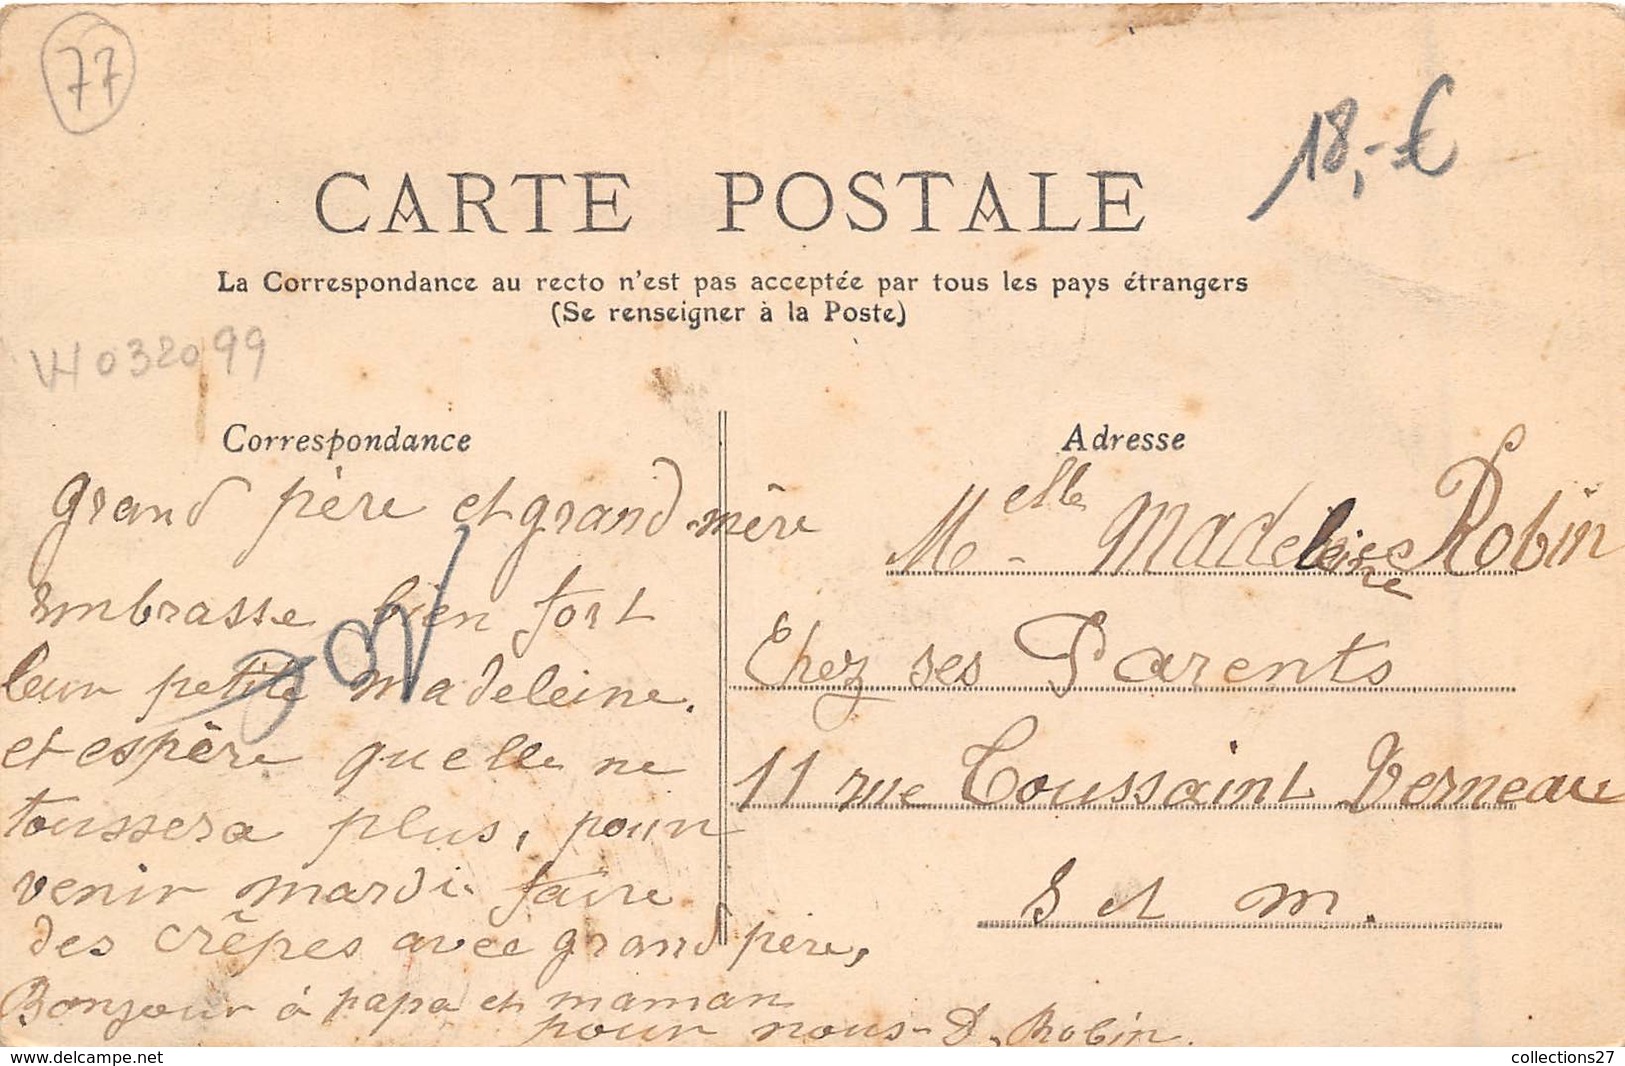 77
18,-€
CARTE POSTALE
La Correspondance au recto n'est pas acceptée par tous les pays étrangers
(Se renseigner à la Poste)
032099
Correspondance
grand père et grand-mère
embrasse bien fort
leur petite madeleine.
et espère quelle ne
toussera plus, pour
venir mardi faire
des crêpes avec grand père,
Bonjour à papa et maman
pour nous - D. Robin.
Adresse
Melle Madeleine Robin
Chez ses Parents
11 rue Toussaint Verneau
S et M.
collections27